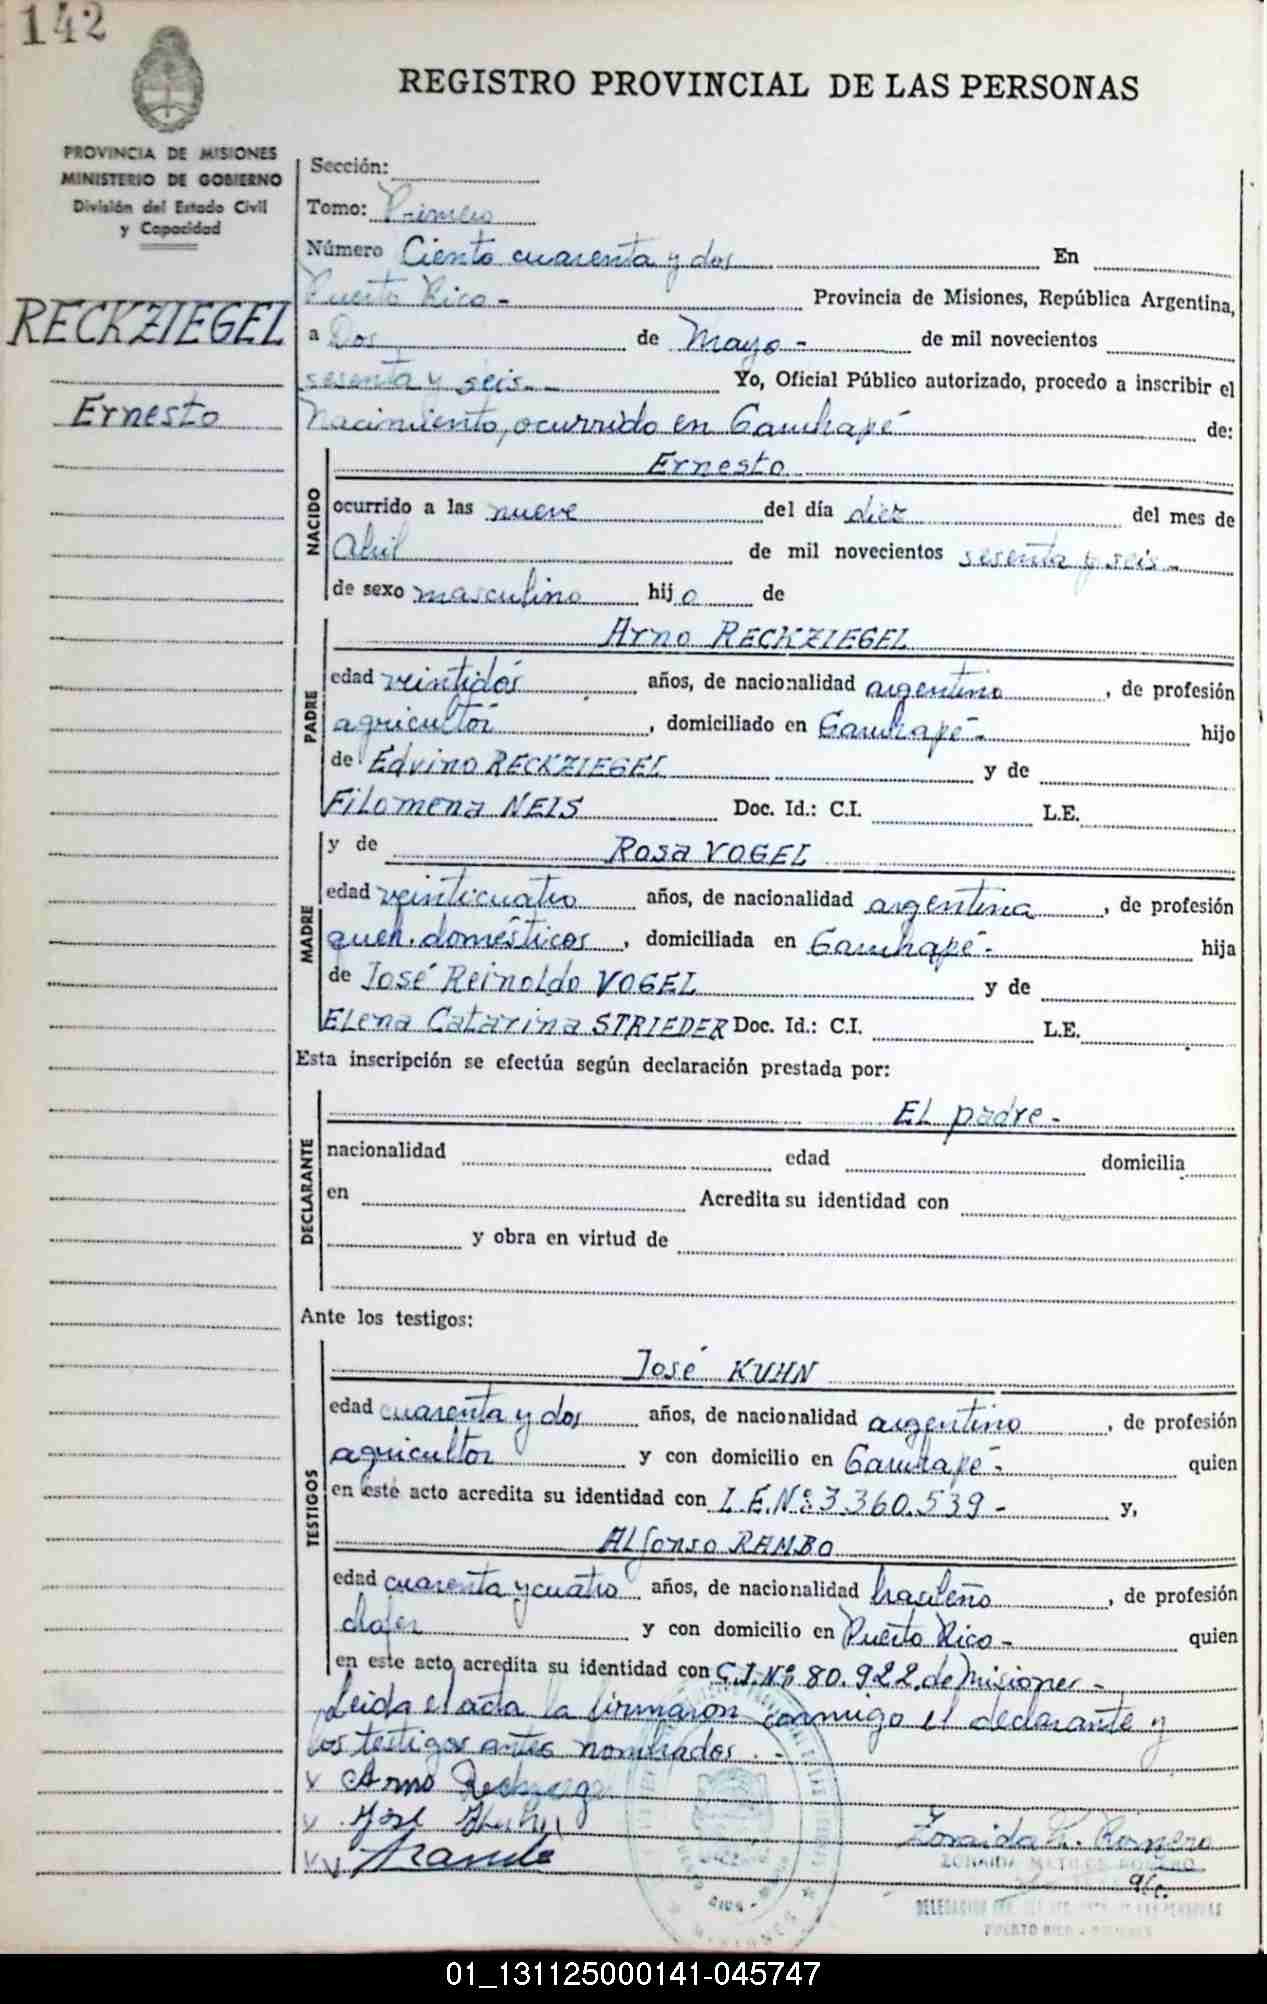 142
REGISTRO PROVINCIAL DE LAS PERSONAS
PROVINCIA DE MISIONES
MINISTERIO DE GOBIERNO
División del Estado Civil
y Capacidad
RECKZIEGEL
Ernesto
Sección:
Tomo: Primero
Número Ciento cuarenta y dos En
Puerto Rico - Provincia de Misiones, República Argentina,
a Dos de Mayo - de mil novecientos
sesenta y seis. - Yo, Oficial Público autorizado, procedo a inscribir el
Nacimiento, ocurrido en Garuhapé de:
NACIDO
Ernesto
ocurrido a las nueve del día diez del mes de
Abril de mil novecientos sesenta y seis -
de sexo masculino hijo de
PADRE
Arno RECKZIEGEL
edad veintidós años, de nacionalidad argentino, de profesión
agricultor, domiciliado en Garuhapé - hijo
de Edvino RECKZIEGEL y de
Filomena NEIS Doc. Id.: C.I. L.E.
MADRE
y de Rosa VOGEL
edad veinticuatro años, de nacionalidad argentina, de profesión
queh. domésticos, domiciliada en Garuhapé - hija
de José Reinoldo VOGEL y de
Elena Catarina STRIEDER Doc. Id.: C.I. L.E.
Esta inscripción se efectúa según declaración prestada por:
DECLARANTE
El padre -
nacionalidad edad domicilia
en Acredita su identidad con
y obra en virtud de
Ante los testigos:
TESTIGOS
José KUHN
edad cuarenta y dos años, de nacionalidad argentino, de profesión
agricultor y con domicilio en Garuhapé - quien
en este acto acredita su identidad con L.E. Nº 3.360.539 - y,
Alfonso RAMBO
edad cuarenta y cuatro años, de nacionalidad brasileño, de profesión
chofer y con domicilio en Puerto Rico - quien
en este acto acredita su identidad con C.I. Nº 80.922. de Misiones -
Leida el acta la firmaron conmigo el declarante y
los testigos antes nombrados. -
x Arno
x José Kuhn
x Rambo
Zoraida M. Romero
ZORAIDA ROMERO
PUERTO RICO - MISIONES
01_131125000141-045747